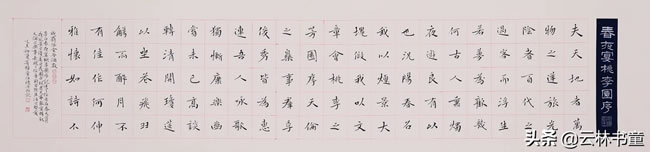 春夜宴桃李園序
夫天地者萬
物之逆旅光
陰者百代之
過客而浮生
若夢為歡幾
何古人秉燭
夜遊良有以
也況陽春召
我以煙景大
塊假我以文
章會桃李之
芳園序天倫
之樂事群季
俊秀皆為惠
連吾人詠歌
獨慚康樂幽
賞未已高談
轉清開瓊筵
以坐花飛羽
觴而醉月不
有佳作何伸
雅懷如詩不
头条 @云林书童